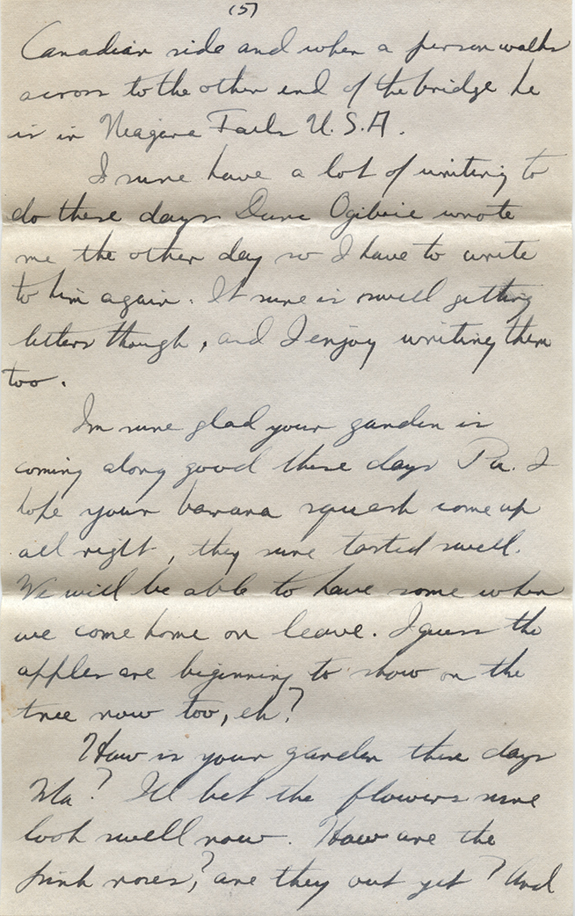 (5)
Canadian side and when a person walks
across to the other end of the bridge he
is in Niagara Falls U.S.A.
I sure have a lot of writing to
do these days Dune Ogilvie wrote
me the other day so I have to write
to him again. It sure is swell getting
letters though, and I enjoy writing them
too.
Im sure glad your garden is
coming along good these days Pa. I
hope your banana squash come up
all right, they sure tasted swell.
We will be able to have some when
we come home on leave. I guess the
apples are beginning to show on the
tree now too, eh?
How is your garden these days
Ma? I'll bet the flowers sure
look swell now. How are the
pink roses, are they out yet? And